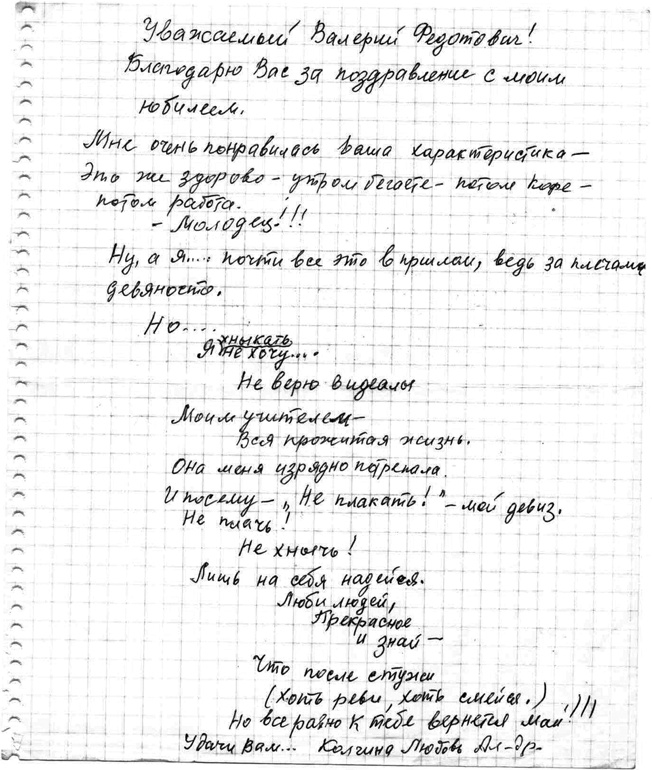 Уважаемый Валерий Федотович!
Благодарю Вас за поздравление с моим
юбилеем.
Мне очень понравилась Ваша характеристика –
Это же здорово – утром бегаете – потом кофе –
потом работа.
– Молодец!!!
Ну, а я.... почти все это в пршлом, ведь за плечами
девяносто.
Но....
хныкать
Я не хочу....
Не верю в идеалы
Моим учителем –
Вся прожитая жизнь.
Она меня изрядно потрепала.
И посему – „Не плакать!" – мой девиз.
Не плачь!
Не хнычь!
Лишь на себя надейся.
Люби людей,
Прекрасное
и знай –
Что после стужи
(хоть реви, хоть смейся.)
Но все равно к тебе вернется май!)))
Удачи Вам... Любовь Ал-др-